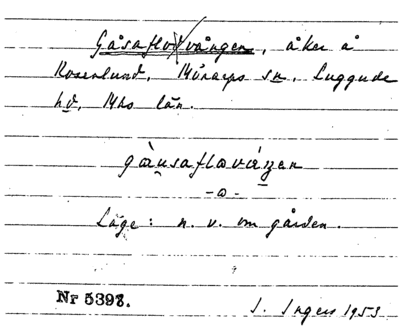 Gåsaflovången, åker å
Rosenlund, Mörarps sn, Luggude
hd, Mhs län.
gàusaflováŋen
-o-
Läge: n. v. om gården.
Nr 5398.
I. Ingers 1953